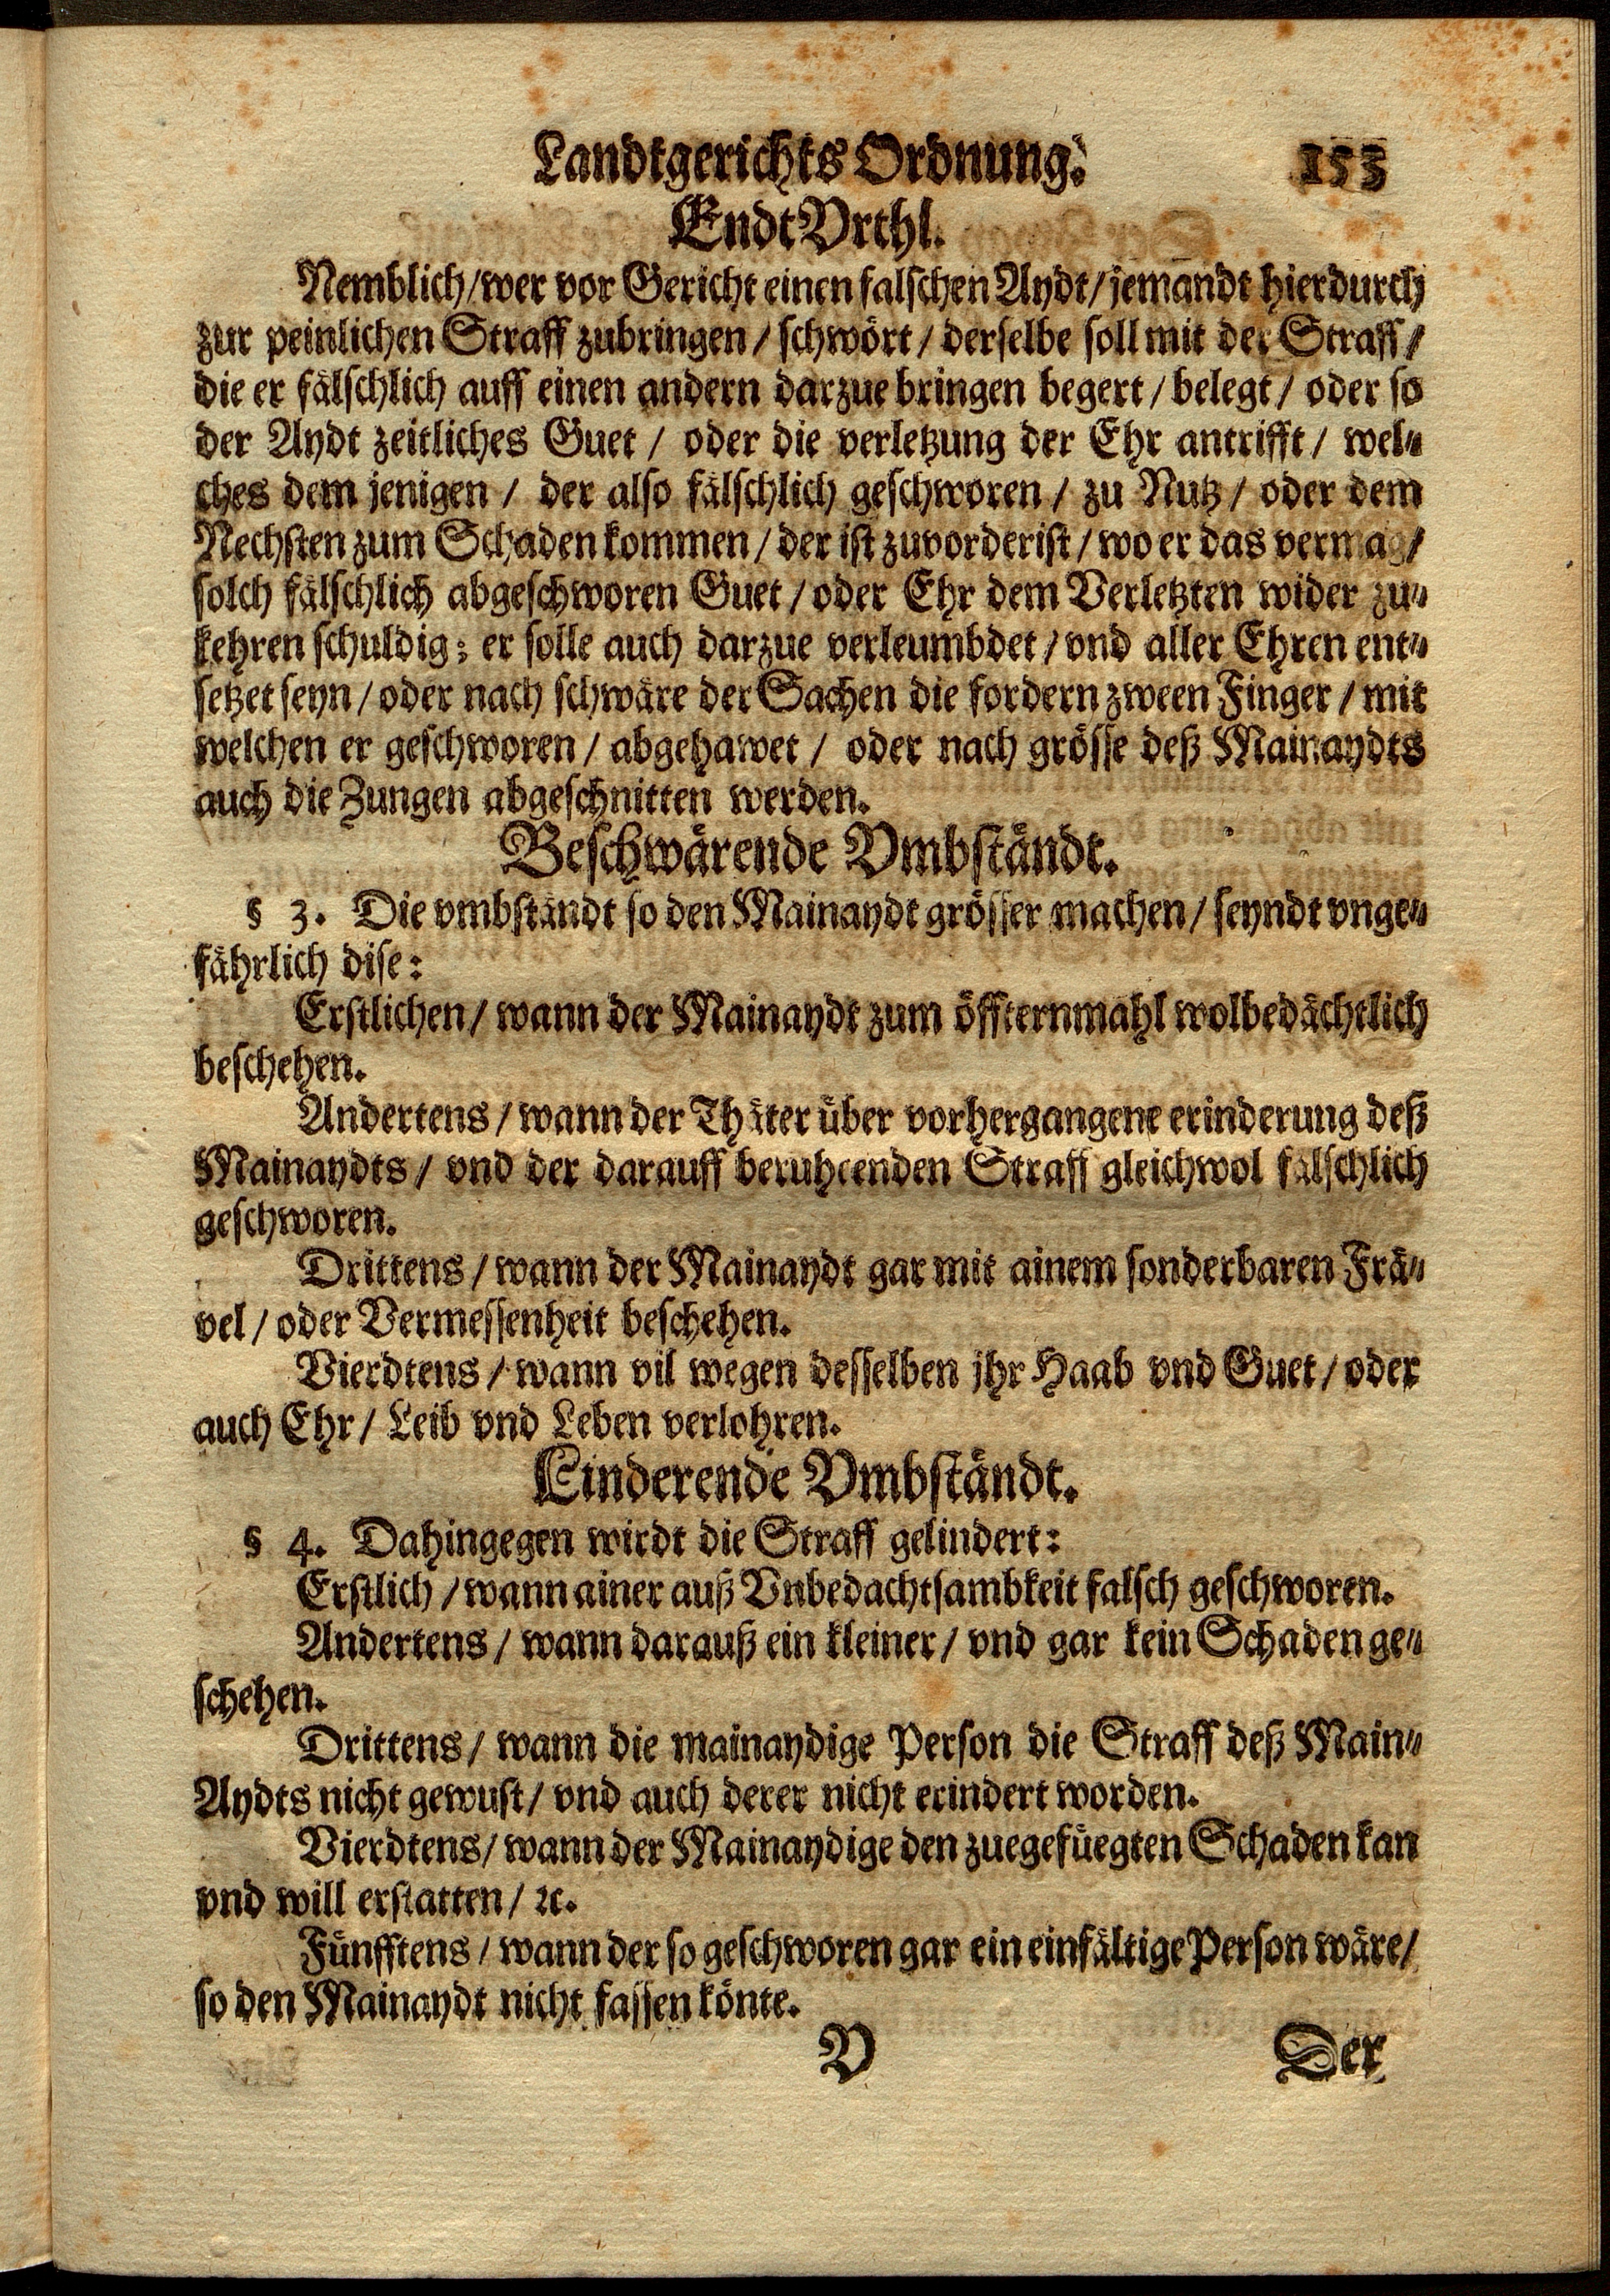 Landtgerichts Ordnung. 153
EndtVrthl.
Nemblich/wer vor Gericht einen falschen Aydt/jemandt hierdurch
zur peinlichen Straff zubringen / schwört / derselbe soll mit der Straff /
die er fälschlich auff einen andern darzue bringen begert / belegt / oder so
der Aydt zeitliches Guet / oder die verletzung der Ehr antrifft / wel-
ches dem jenigen / der also fälschlich geschworen / zu Nutz / oder dem
Nechsten zum Schaden kommen / der ist zuvorderist / wo er das vermag /
solch fälschlich abgeschworen Guet / oder Ehr dem Verletzten wider zu-
kehren schuldig: er solle auch darzue verleumbdet / vnd aller Ehren ent-
setzet seyn / oder nach schwäre der Sachen die fordern zween Finger / mit
welchen er geschworen / abgehawet / oder nach grösse deß Mainaydts
auch die Zungen abgeschnitten werden.
Beschwärende Vmbständt.
§ 3. Die vmbständt so den Mainaydt grösser machen / seyndt vnge-
fährlich dise:
Erstlichen / wann der Mainaydt zum öffternmahl wolbedächtlich
beschehen.
Andertens / wann der Thäter über vorhergangene erinderung deß
Mainaydts / vnd der darauff beruhenden Straff gleichwol fälschlich
geschworen.
Drittens / wann der Mainaydt gar mit ainem sonderbaren Frä-
vel / oder Vermessenheit beschehen.
Vierdtens / wann vil wegen desselben jhr Haab vnd Guet / oder
auch Ehr / Leib vnd Leben verlohren.
Linderende Vmbständt.
§ 4. Dahingegen wirdt die Straff gelindert:
Erstlich / wann ainer auß Vnbedachtsambkeit falsch geschworen.
Andertens / wann darauß ein kleiner / vnd gar kein Schaden ge-
schehen.
Drittens / wann die mainaydige Person die Straff deß Main-
Aydts nicht gewust / vnd auch derer nicht erindert worden.
Vierdtens / wann der Mainaydige den zuegefüegten Schaden kan
vnd will erstatten / ꝛc.
Fünfftens / wann der so geschworen gar ein einfältige Person wäre /
so den Mainaydt nicht fassen könte.
V Der